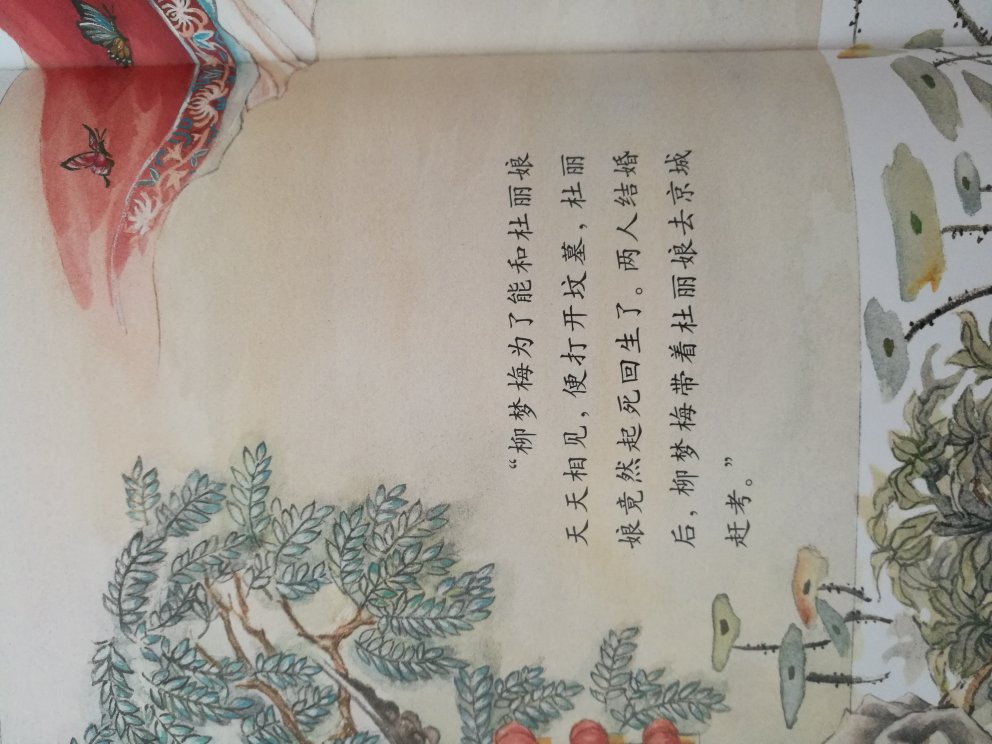 “柳梦梅为了能和杜丽娘
天天相见，便打开坟墓，杜丽
娘竟然起死回生了。两人结婚
后，柳梦梅带着杜丽娘去京城
赶考。”